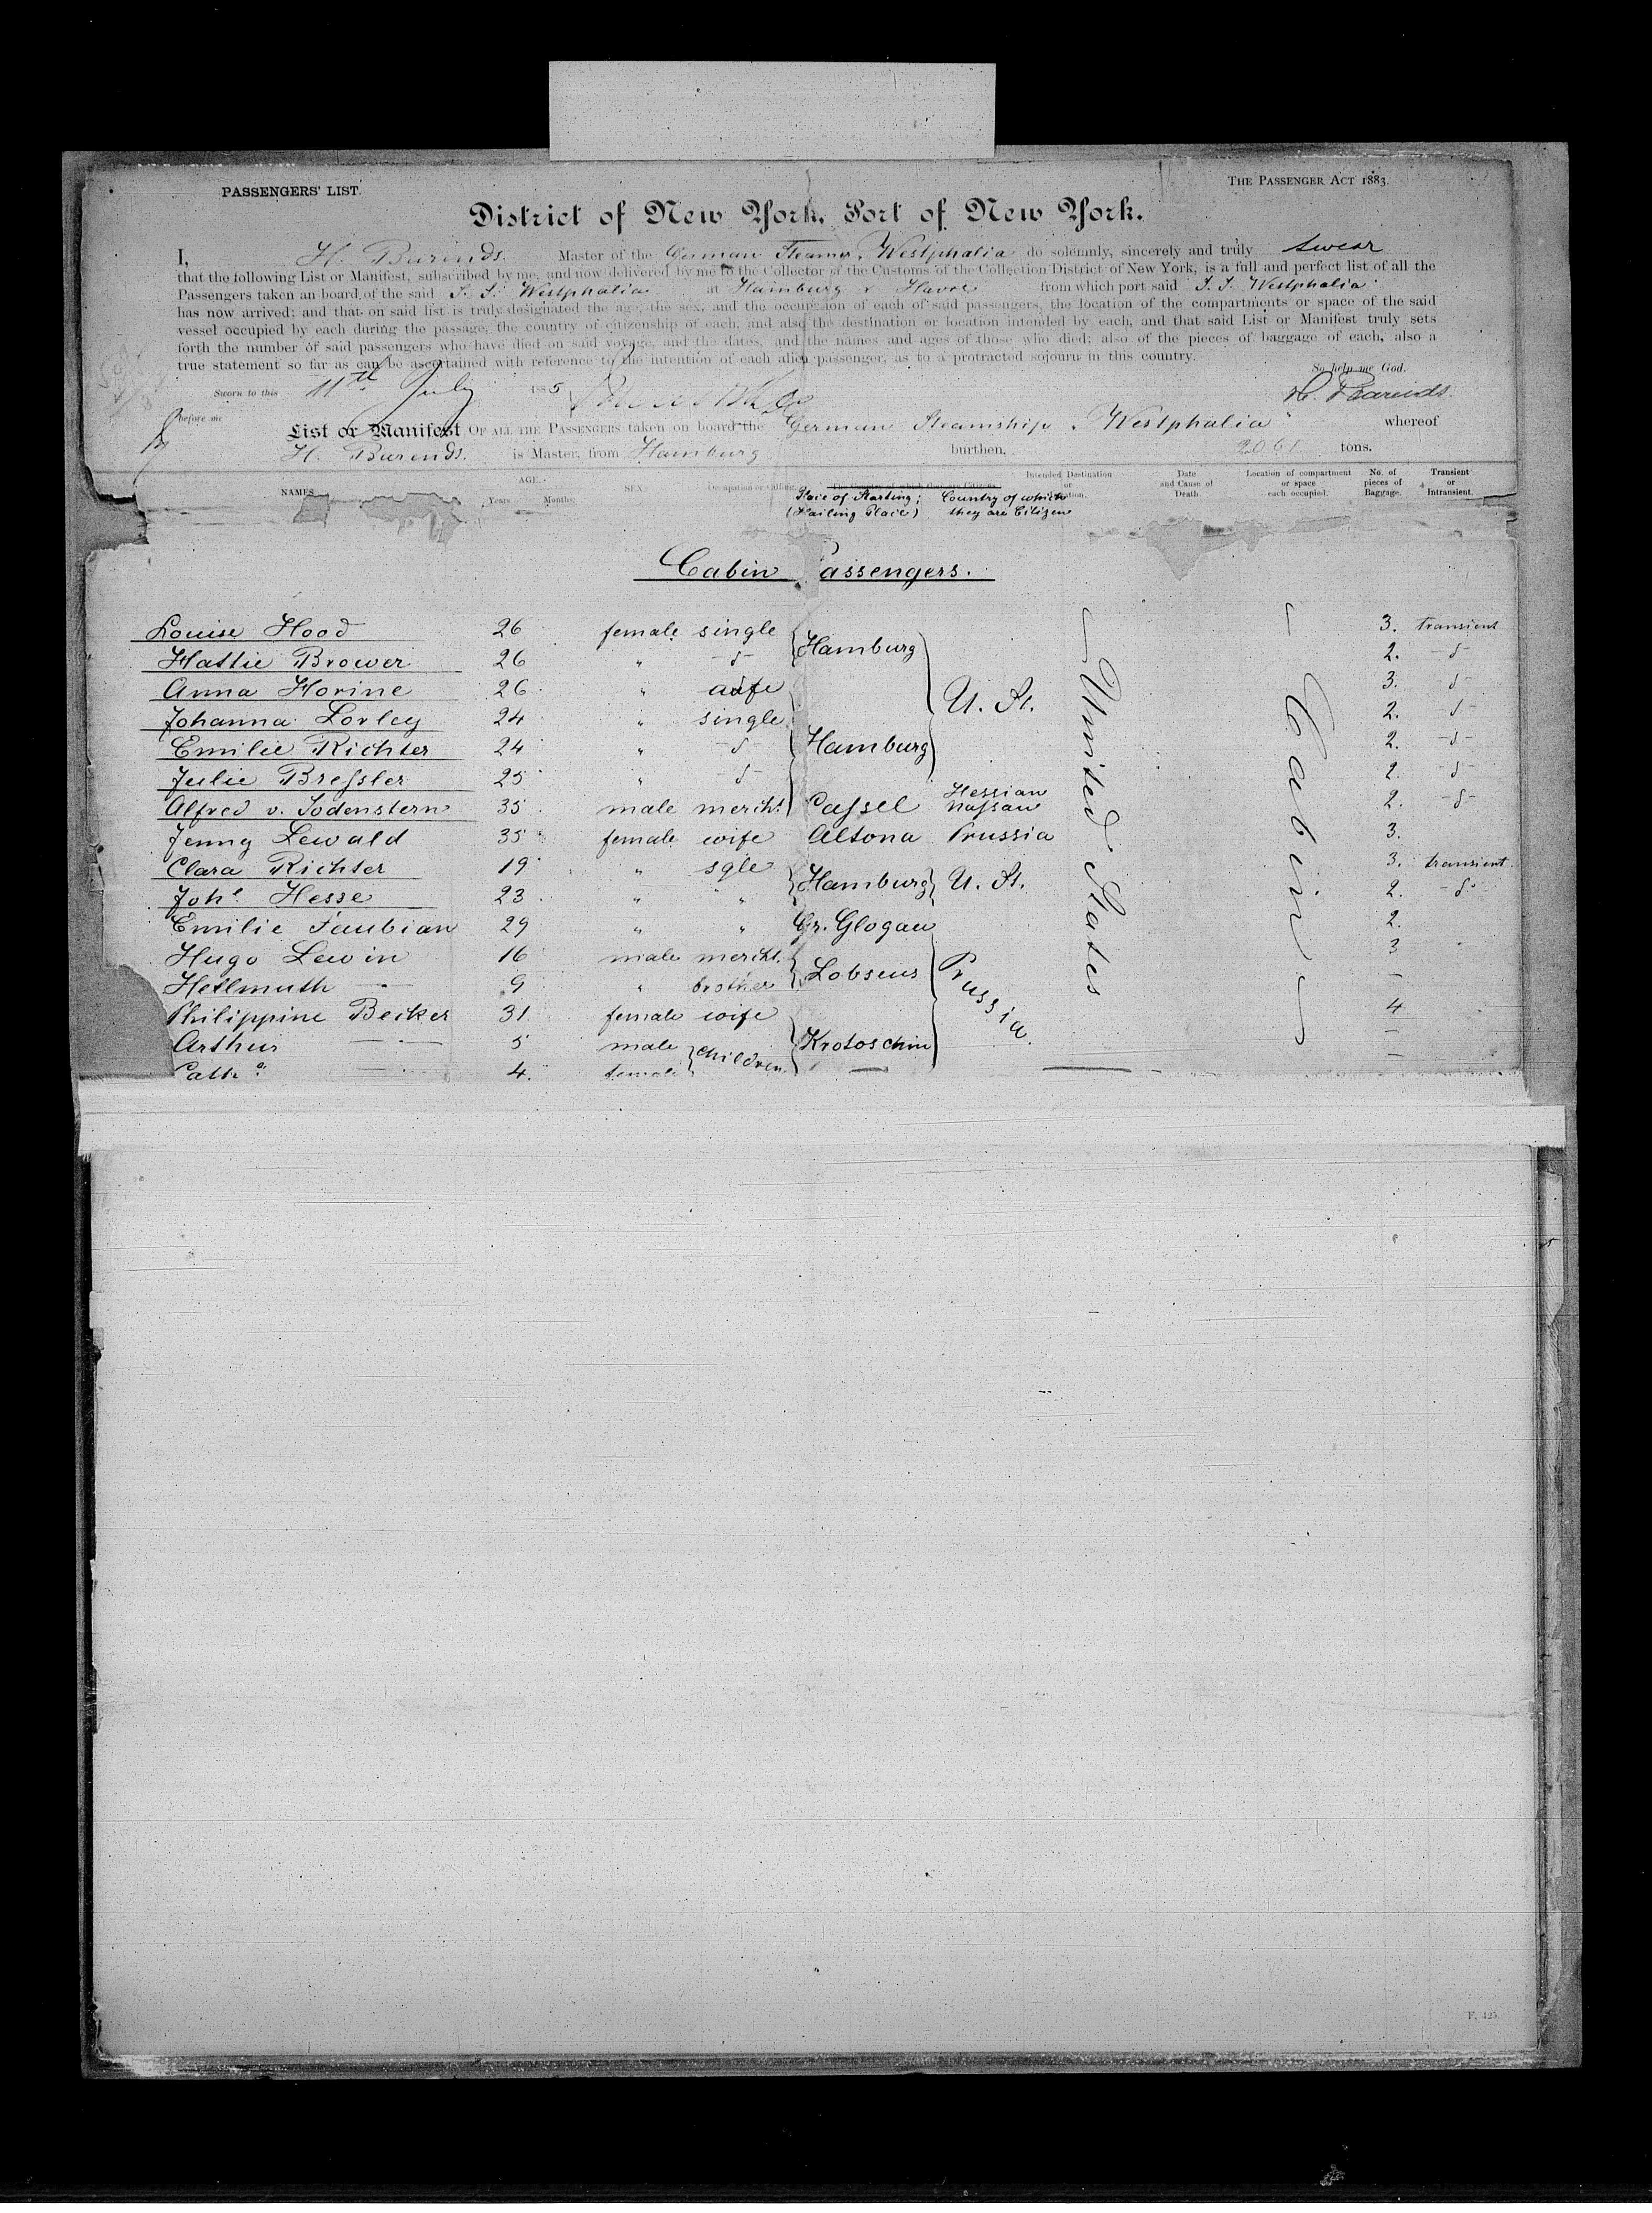 PASSENGERS' LIST.
THE PASSENGER ACT 1883.
District of New York, Port of New York.
I, H. Barends. Master of the German Steamer, Westphalia do solemnly, sincerely and truly swear
that the following List or Manifest, subscribed by me, and now delivered by me to the Collector of the Customs of the Collection District of New York, is a full and perfect list of all the
Passengers taken an board of the said S. S. Westphalia at Hamburg & Havre from which port said S. S. Westphalia
has now arrived; and that on said list is truly designated the age, the sex, and the occupation of each of said passengers, the location of the compartments or space of the said
vessel occupied by each during the passage, the country of citizenship of each, and also the destination or location intended by each, and that said List or Manifest truly sets
forth the number of said passengers who have died on said voyage, and the dates, and the names and ages of those who died; also of the pieces of baggage of each, also a
true statement so far as can be ascertained with reference to the intention of each alien passenger, as to a protracted sojourn in this country.
So help me God.
Sworn to this 11th July 1885
H. Barends.
before me
List or Manifest OF ALL THE PASSENGERS taken on board the German Steamship "Westphalia" whereof
H. Barends. is Master, from Hamburg burthen, 2061 tons.
NAMES AGE. Years Months SEX Occupation or Calling. The Country of which they are Citizens. Intended Destination or Location. Date and Cause of Death. Location of compartment or space each occupied. No. of pieces of Baggage. Transient or Intransient.
Place of Starting; Country of which
(Hailing Place) they are Citizens
Cabin Passengers.
Louise Hood 26 female single Hamburg U. St. United States Cabin 3. transient
Hattie Brower 26 " -d- 2. -d-
Anna Horine 26 " wife 3. -d-
Johanna Lorley 24 " single Hamburg 2. d-
Emilie Richter 24 " -d- 2. -d-
Julie Breſsler 25 " -d- 2. -d-
Alfred v. Sodenstern 35 male mercht. Caſsel Hessian Naſsau 2. -d-
Jenny Lewald 35 female wife Altona Prussia 3.
Clara Richter 19 " sgle Hamburg U. St. 3. transient
Johe Hesse 23 " " 2. -d-
Emilie Faubian 29 " " Gr. Glogau Prussia. 2.
Hugo Lewin 16 male mercht. Lobsens 3
Hellmuth — 9 " brother —
Philippine Becker 31 female wife Krotoschin 4
Arthur — 5 male children —
Cathe — 4. female —
F. 425